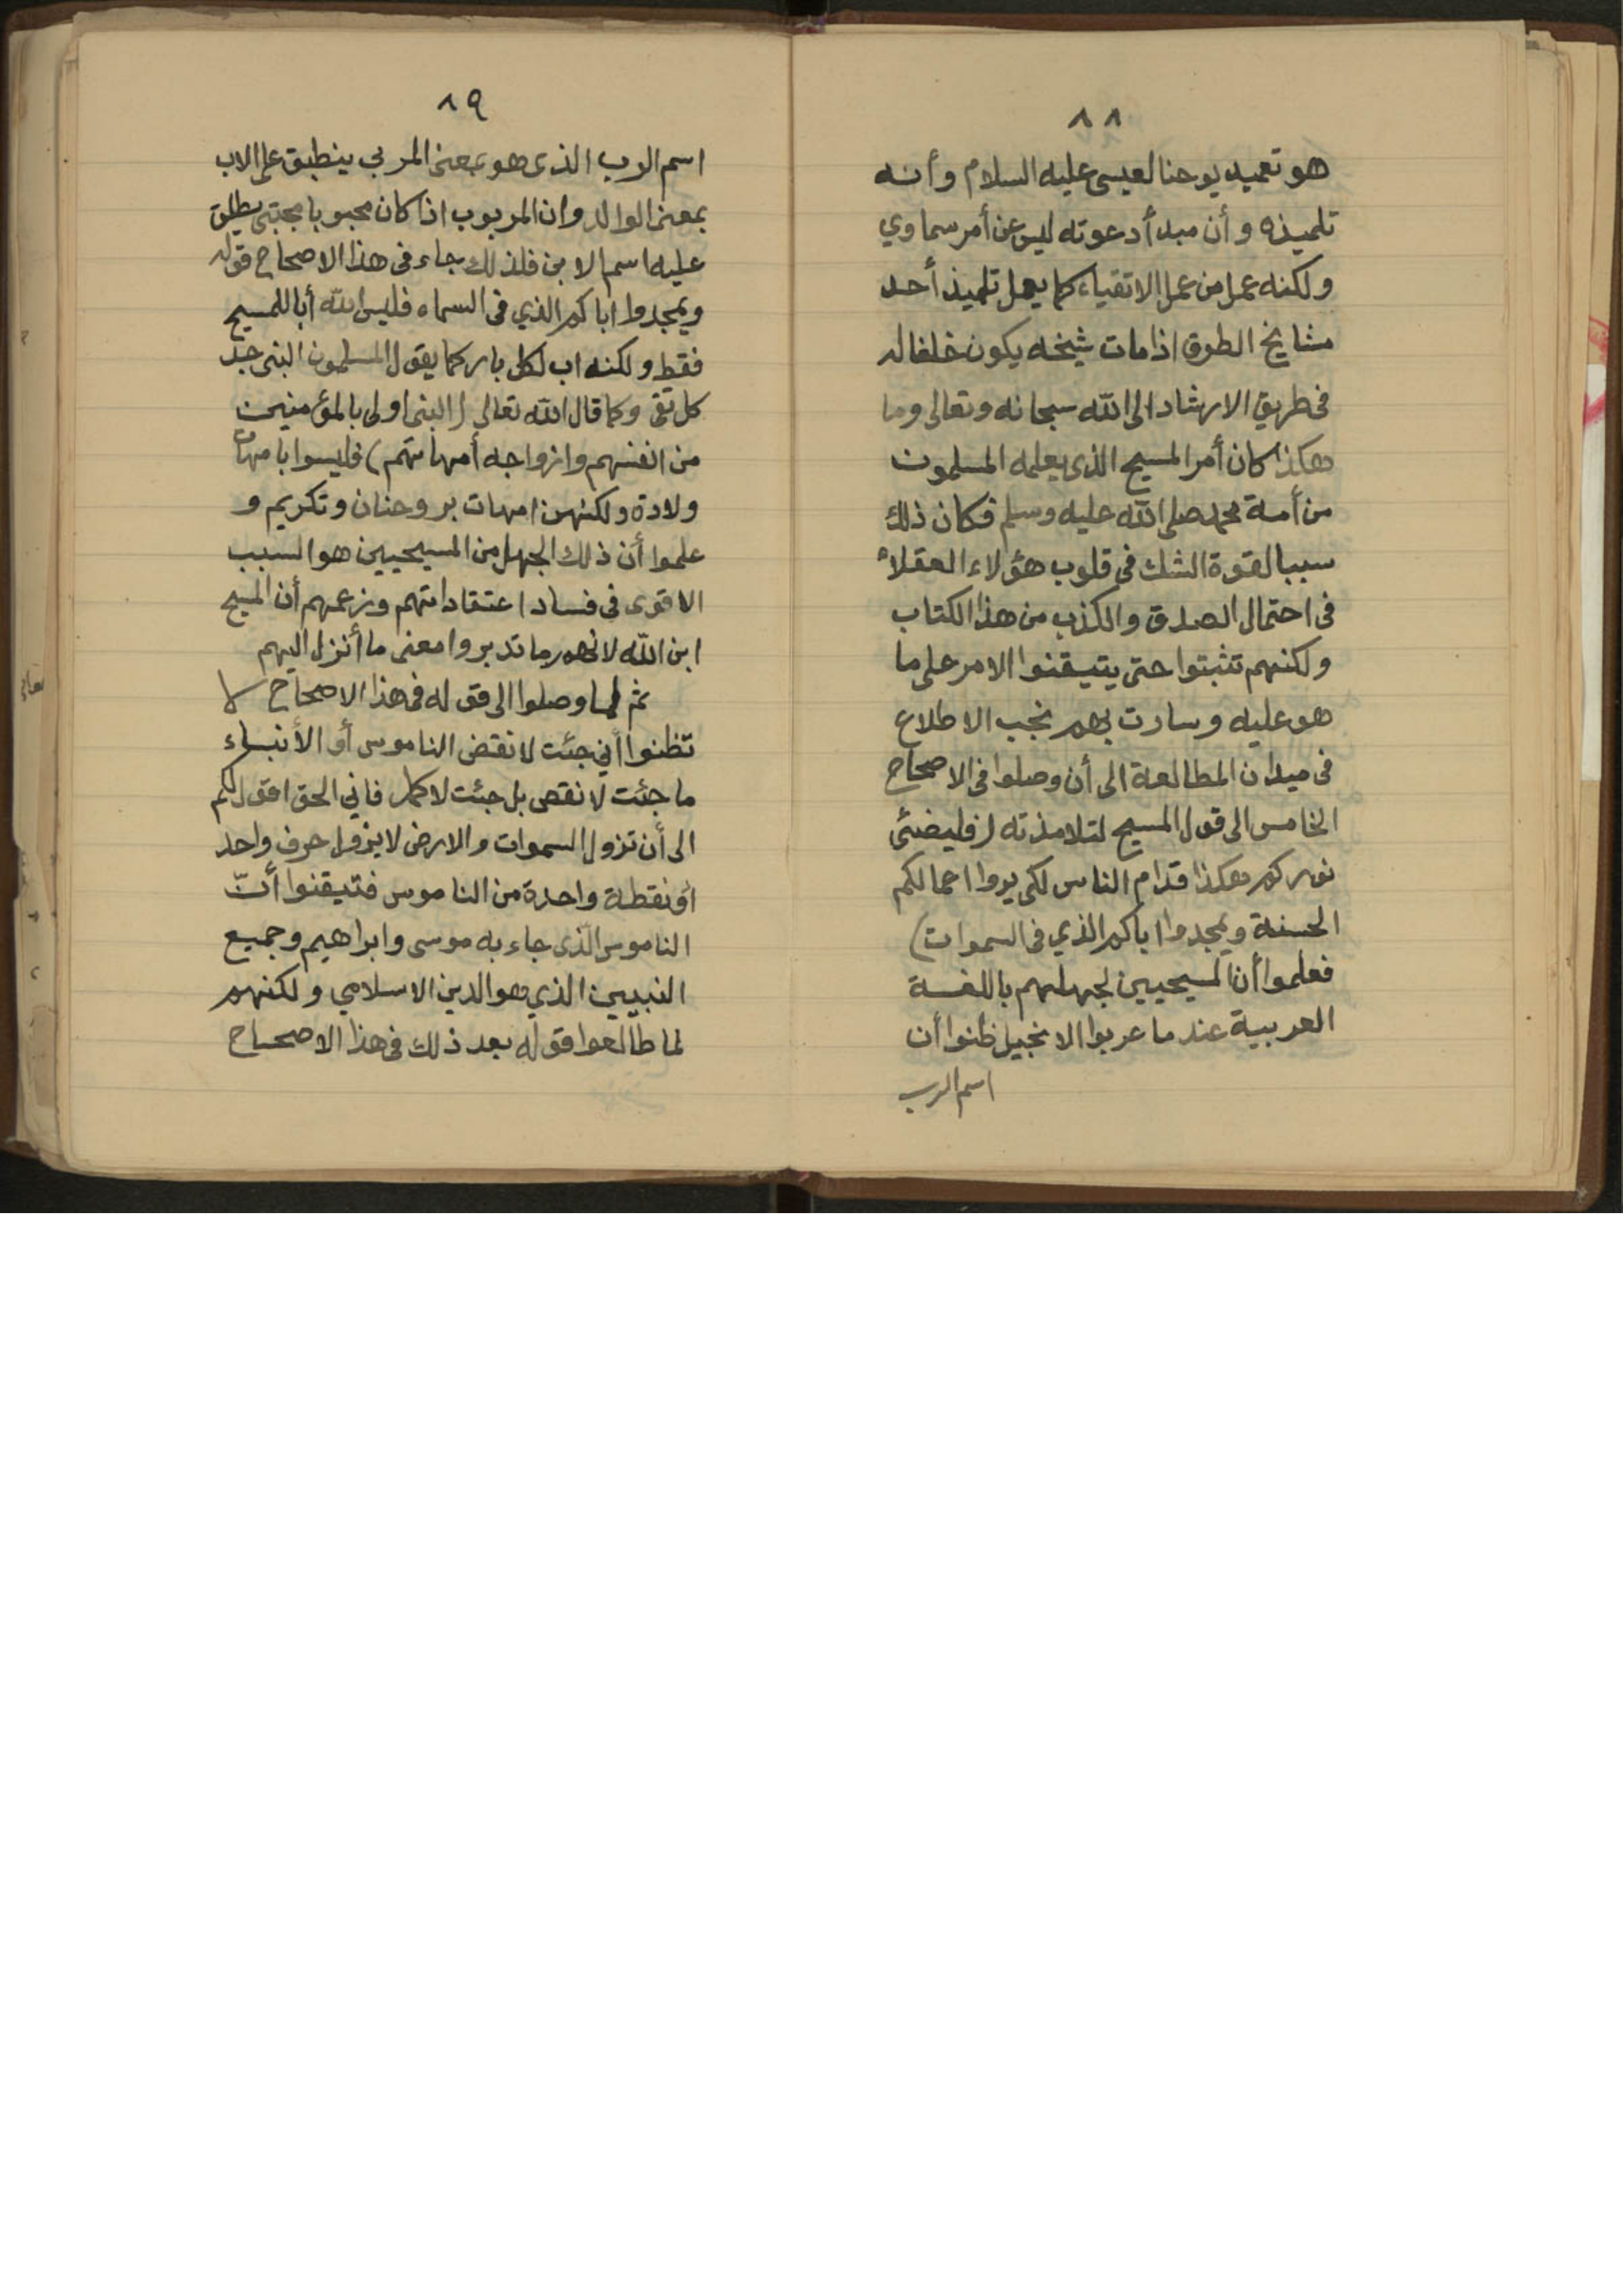 ٨٨
هو تعميد يوحنا لعيسى عليه السلام وأنه
تلميذه وأن مبدأ دعوته ليس عن أمر سماوي
ولكنه عمل من عمل الاتقياء كما يعمل تلميذ أحد
مشايخ الطرق اذا مات شيخه يكون خلفا له
فى طريق الارشاد الى الله سبحانه وتعالى وما
هكذا كان أمر المسيح الذى يعلمه المسلمون
من أمة محمد صلى الله عليه وسلم فكان ذلك
سببا لقوة الشك فى قلوب هؤلاء العقلاء
فى احتمال الصدق والكذب من هذا الكتاب
ولكنهم تثبتوا حتى يتيقنوا الامر على ما
هو عليه وسارت بهم نجب الاطلاع
فى ميدان المطالعة الى أن وصلوا فى الاصحاح
الخامس الى قول المسيح لتلامذته (فليضئ
نوركم هكذا قدام الناس لكى يروا اعمالكم
الحسنة ويمجدوا اباكم الذي فى السموات)
فعلموا أن المسيحيين لجهلهم باللغة
العربية عندما عربوا الانجيل ظنوا أن
اسم الرب
٨٩
اسم الرب الذى هو بمعنى المربي ينطبق على الاب
بمعنى الوالد وان المربوب اذا كان محبوبا مجتبى يطلق
عليه اسم الابن فلذلك جاء فى هذا الاصحاح قوله
ويمجدوا اباكم الذي فى السماء فليس الله أبا للمسيح
فقط ولكنه اب لكل بار كما يقول المسلمون النبى جد
كل تقى وكما قال الله تعالى (النبى اولى بالمؤمنين
من انفسهم وازواجه أمهاتهم) فليسوا بامهات
ولادة ولكنهن امهات بر وحنان وتكريم و
علموا أن ذلك الجهل من المسيحيين هو السبب
الاقوى فى فساد اعتقاداتهم وزعمهم أن المسيح
ابن الله لانهم ما تدبروا معنى ما أنزل اليهم
ثم لما وصلوا الى قوله فى هذا الاصحاح لا
تظنوا أني جئت لانقض الناموس أو الأنبياء
ما جئت لانقص بل جئت لاكمل فاني الحق اقول لكم
الى أن تزول السموات والارض لا يزول حرف واحد
أو نقطة واحدة من الناموس فتيقنوا أنّ
الناموس الذى جاء به موسى وابراهيم وجميع
النبيين الذي هو الدين الاسلامي ولكنهم
لما طالعوا قوله بعد ذلك فى هذا الاصحاح